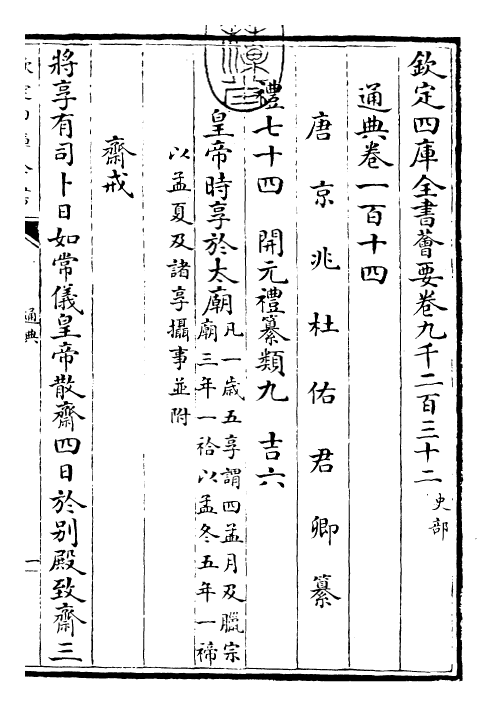 欽定四庫全書薈要卷九千二百三十二 史部
通典卷一百十四
唐京兆杜佑君卿纂
禮七十四 開元禮纂類九 吉六
皇帝時享於太廟 凡一歲五享謂四孟月及臘宗
廟三年一祫以孟冬五年一禘
以孟夏及諸享攝事並附
齋戒
將享有司卜日如常儀皇帝散齋四日於别殿致齋三
通典
一